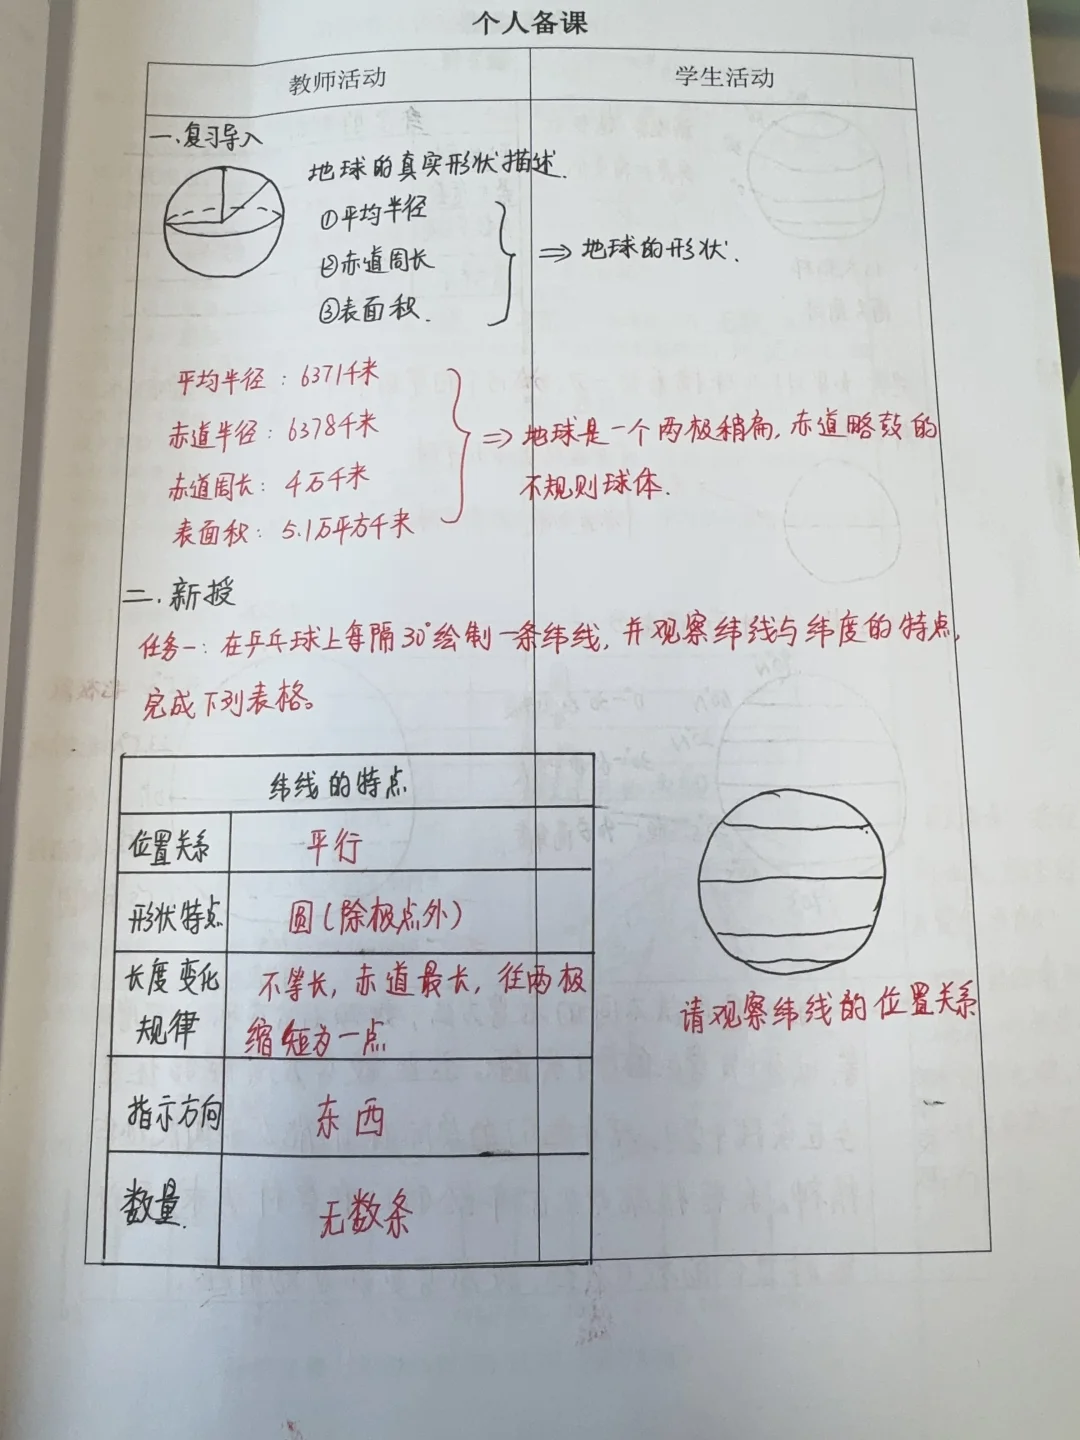 个人备课
教师活动 学生活动
一.复习导入
地球的真实形状描述.
①平均半径
②赤道周长
③表面积.
⇒ 地球的形状.
平均半径：6371千米
赤道半径：6378千米
赤道周长：4万千米
表面积：5.1万平方千米
⇒ 地球是一个两极稍扁,赤道略鼓的
不规则球体.
二.新授
任务一:在乒乓球上每隔30°绘制一条纬线,并观察纬线与纬度的特点,
完成下列表格。
纬线的特点
位置关系 平行
形状特点 圆(除极点外)
长度变化 不等长,赤道最长,往两极
规律 缩短为一点
指示方向 东西
数量. 无数条
请观察纬线的位置关系